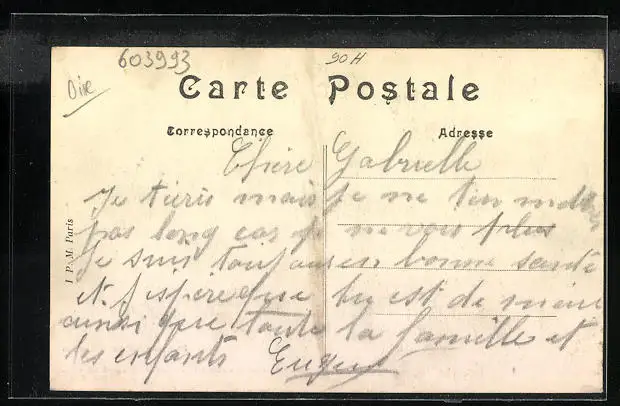 603993
90H
Oise
Carte Postale
Correspondance
Adresse
Chère Gabrielle
Je técris mais je ne ten mets
pas long car je ne vois plus
Je suis toujours en bonne santé
et jespere que tu est de meme
ainsi que toute la famille et
les enfants Eugene
I P. M. Paris